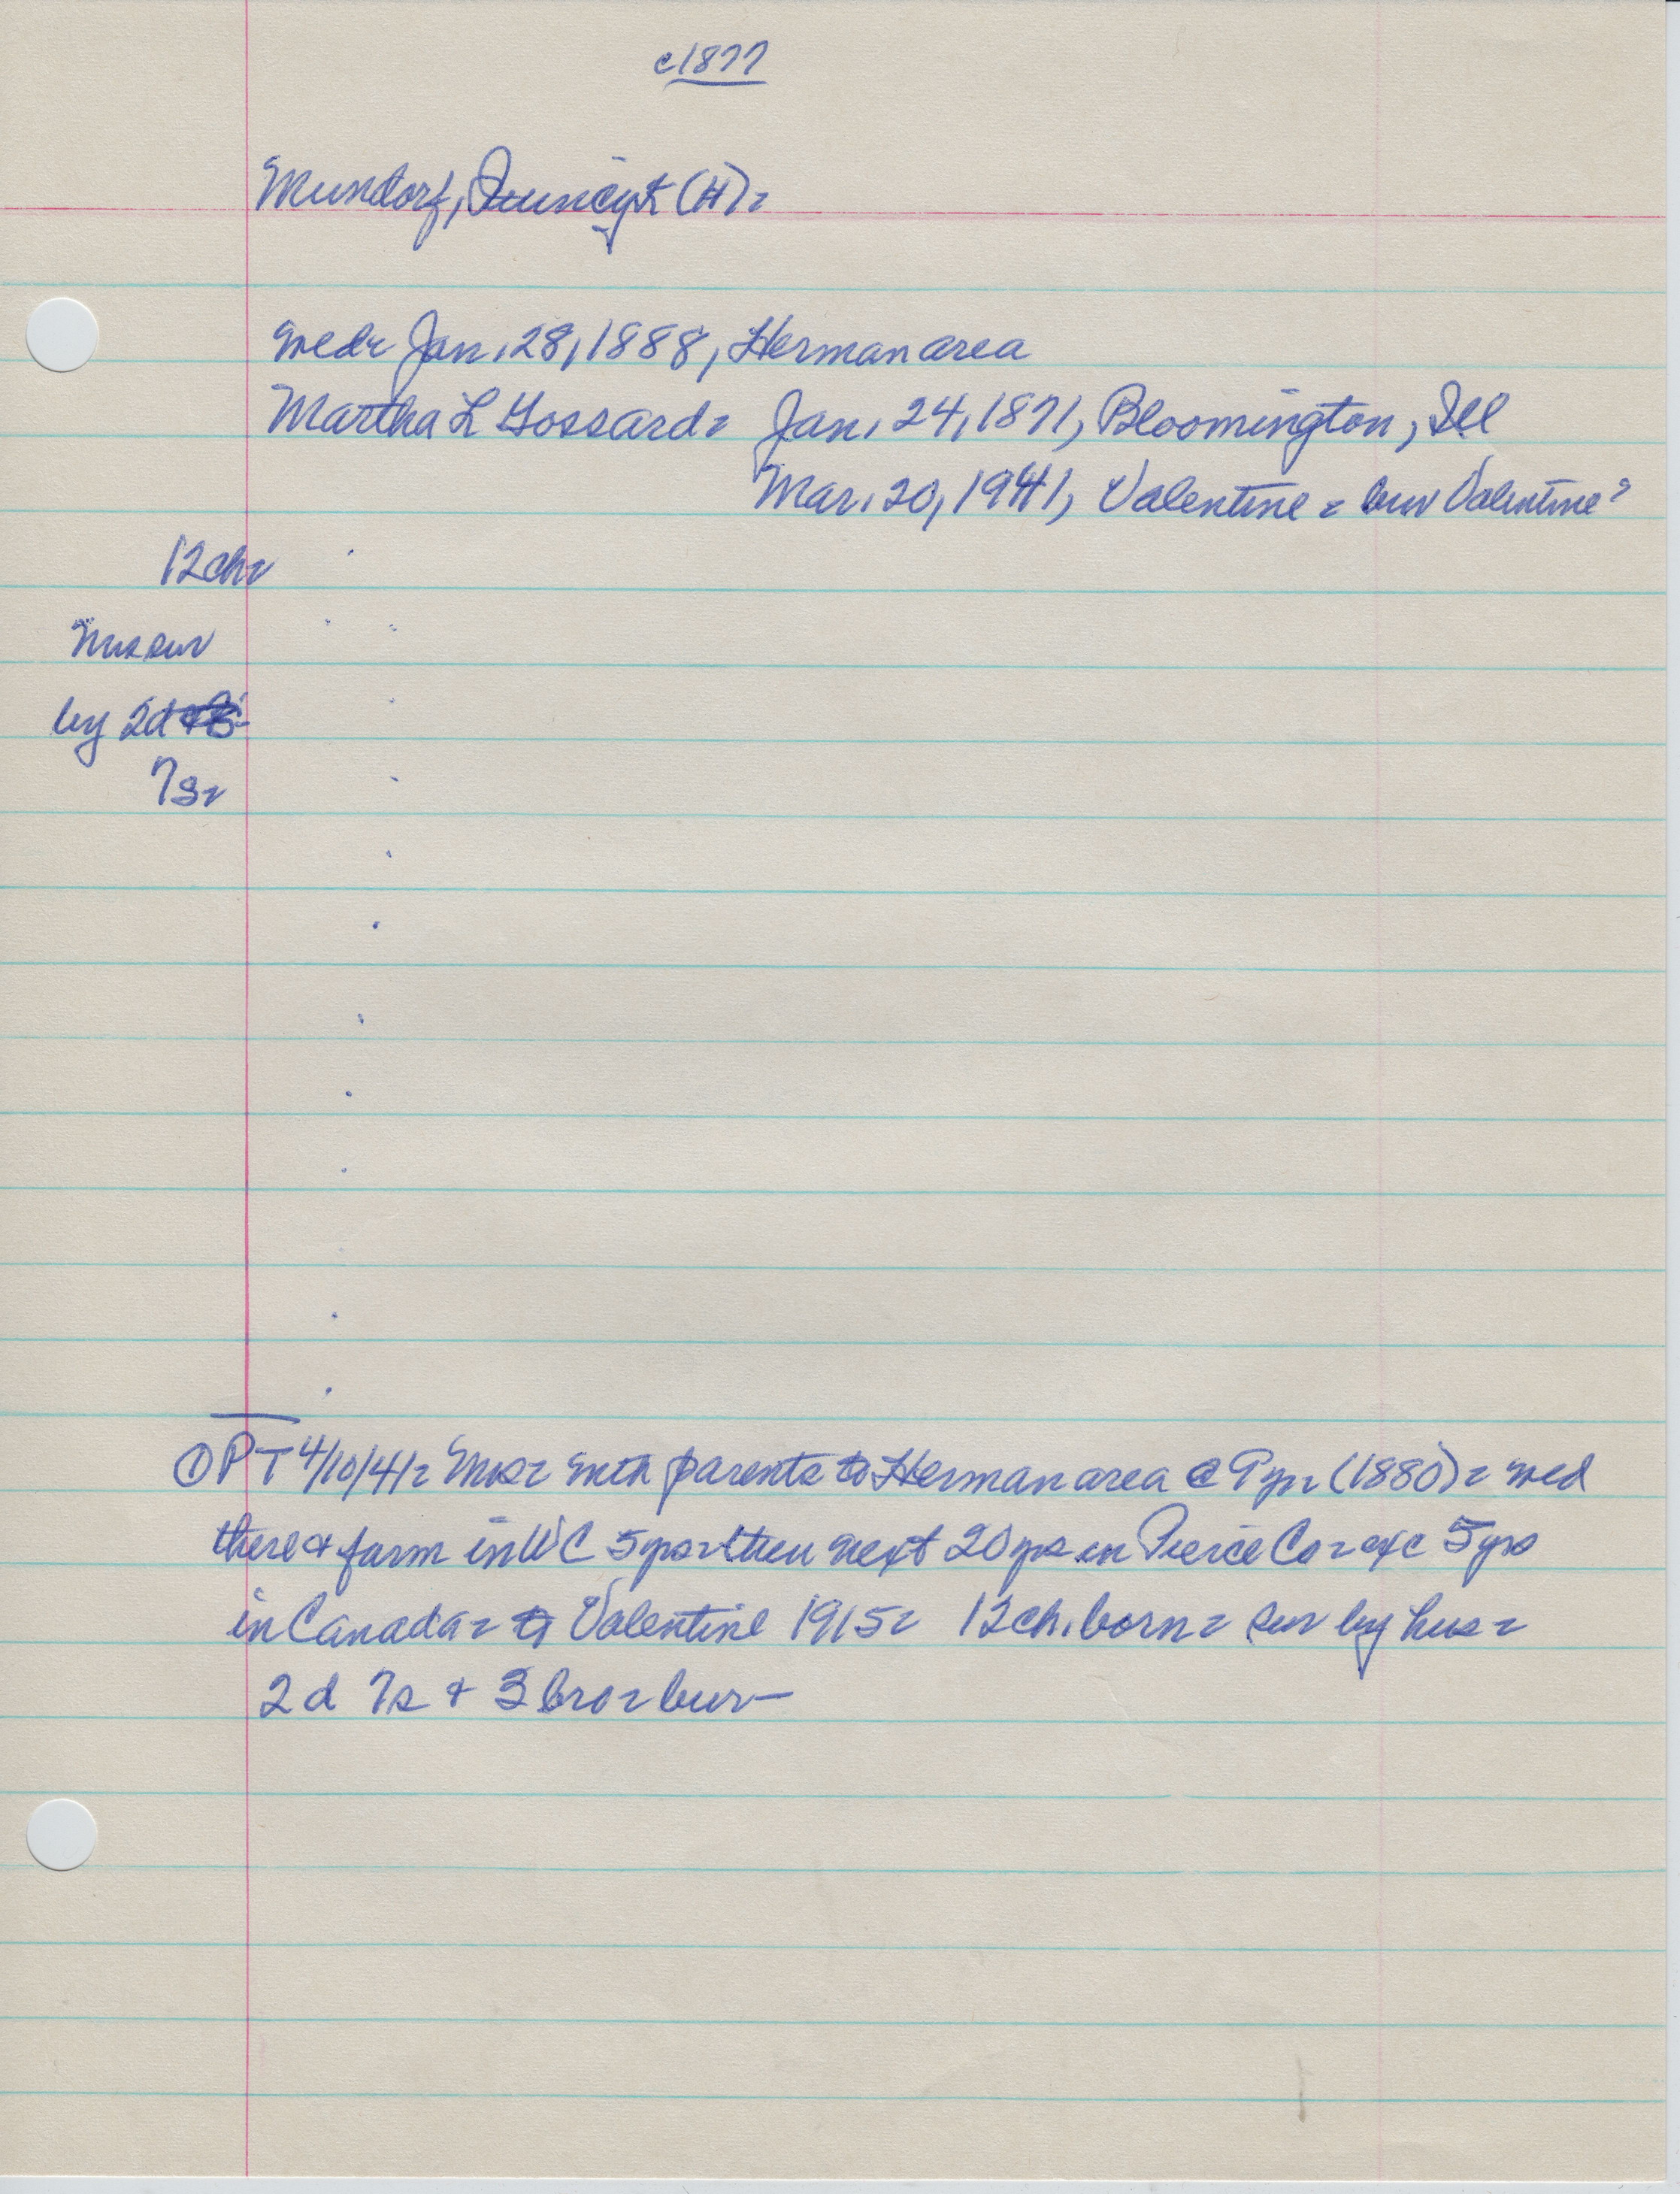 c1877
Mundorf, Quincy (H) =
wed = Jan. 28, 1888, Herman area
Martha L Gossard = Jan. 24, 1871, Bloomington, Ill
Mar. 20, 1941, Valentine = bur Valentine?
12 ch =
Mrs sur
by 2d
7s =
① PT 4/10/41 = Mrs = with parents to Herman area @ 9 yr (1880) = wed
there & farm in WC 5 yrs = then next 20 yrs in Pierce Co = exc 5 yrs
in Canada = to Valentine 1915 = 12 ch. born = sur by hus =
2d 7s + 3 bro = bur —